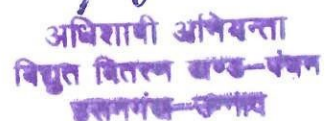 अधिशाषी अभियन्ता
विद्युत वितरण खण्ड-पंचम
हसनगंज-उन्नाव